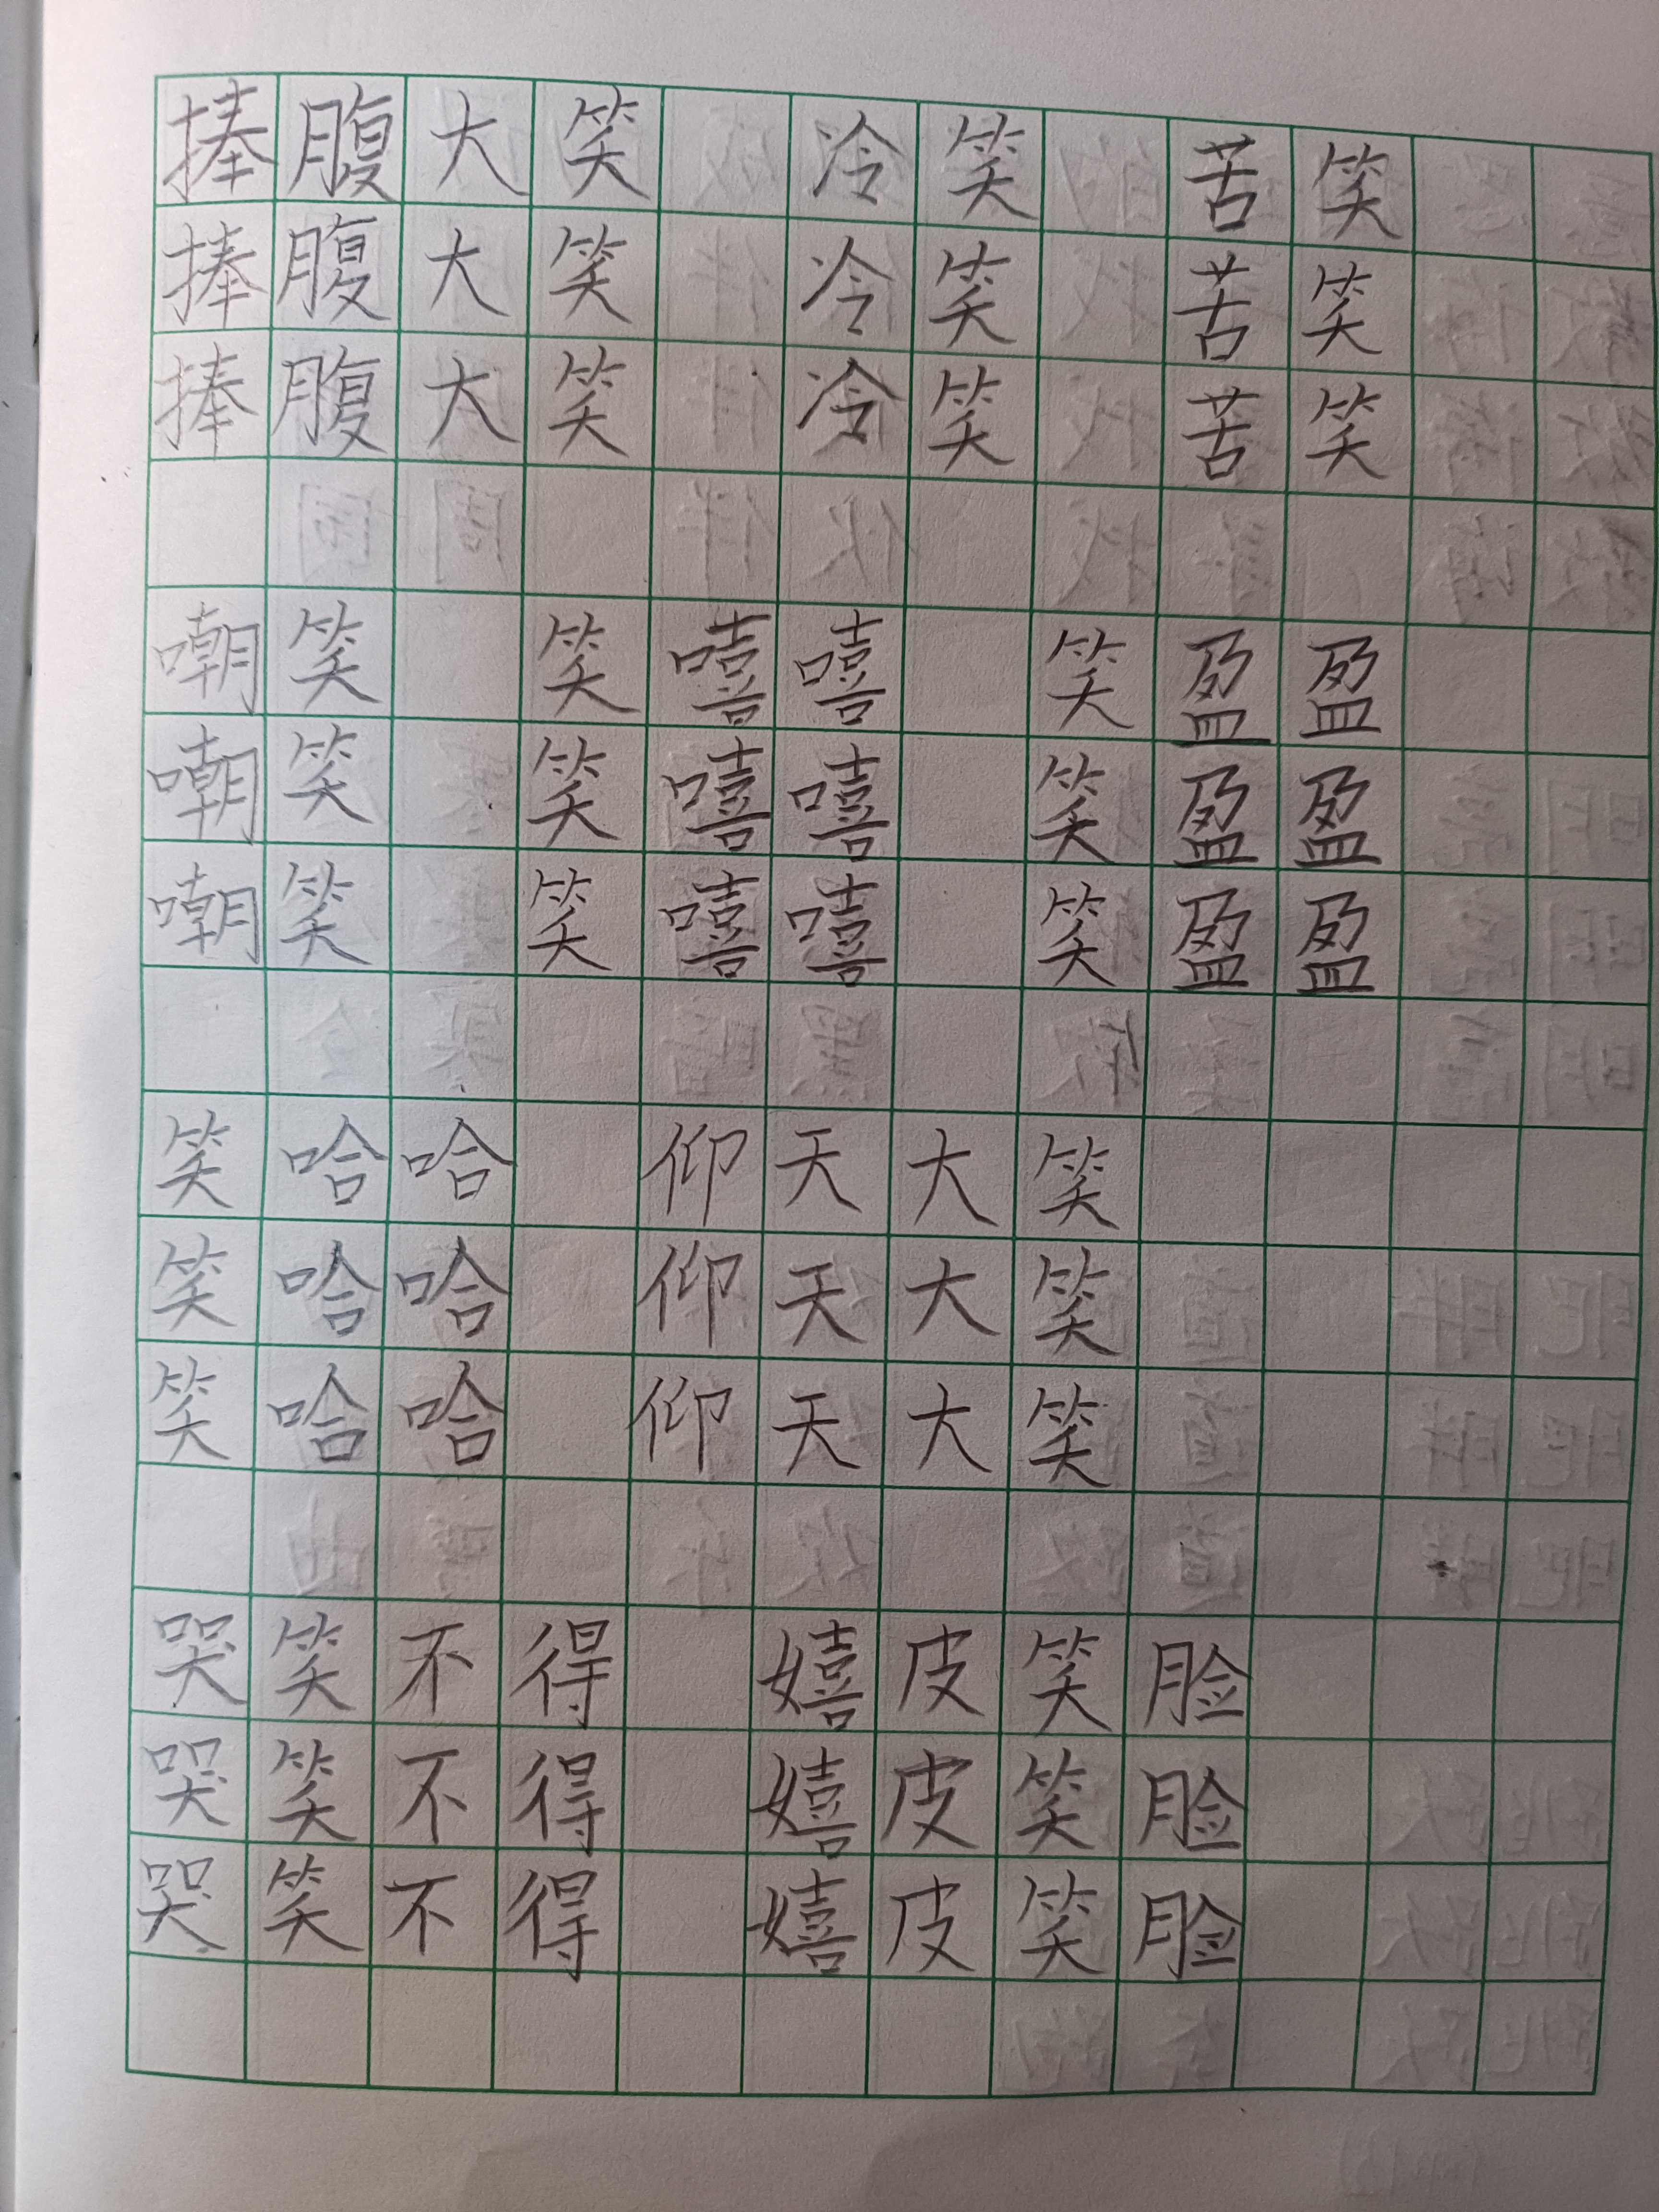 捧腹大笑 冷笑 苦笑
捧腹大笑 冷笑 苦笑
捧腹大笑 冷笑 苦笑
嘲笑 笑嘻嘻 笑盈盈
嘲笑 笑嘻嘻 笑盈盈
嘲笑 笑嘻嘻 笑盈盈
笑哈哈 仰天大笑
笑哈哈 仰天大笑
笑哈哈 仰天大笑
哭笑不得 嬉皮笑脸
哭笑不得 嬉皮笑脸
哭笑不得 嬉皮笑脸